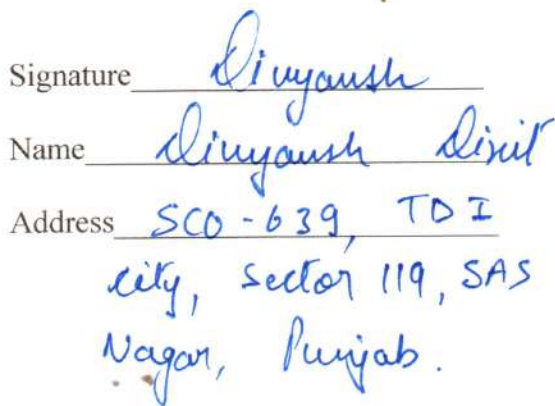 Signature Divyansh
Name Divyansh Dixit
Address SCO-639, TDI
city, Sector 119, SAS
Nagar, Punjab.